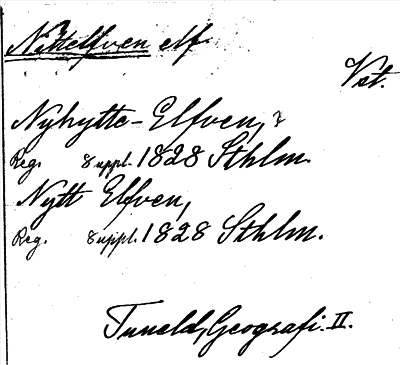 Nittelfven elf.
Vst.
Nyhytte-Elfven, ?
Reg. Suppl. 1828 Sthlm.
Nytt Elfven,
Reg. Suppl. 1828 Sthlm.
Tuneld, Geografi. II.